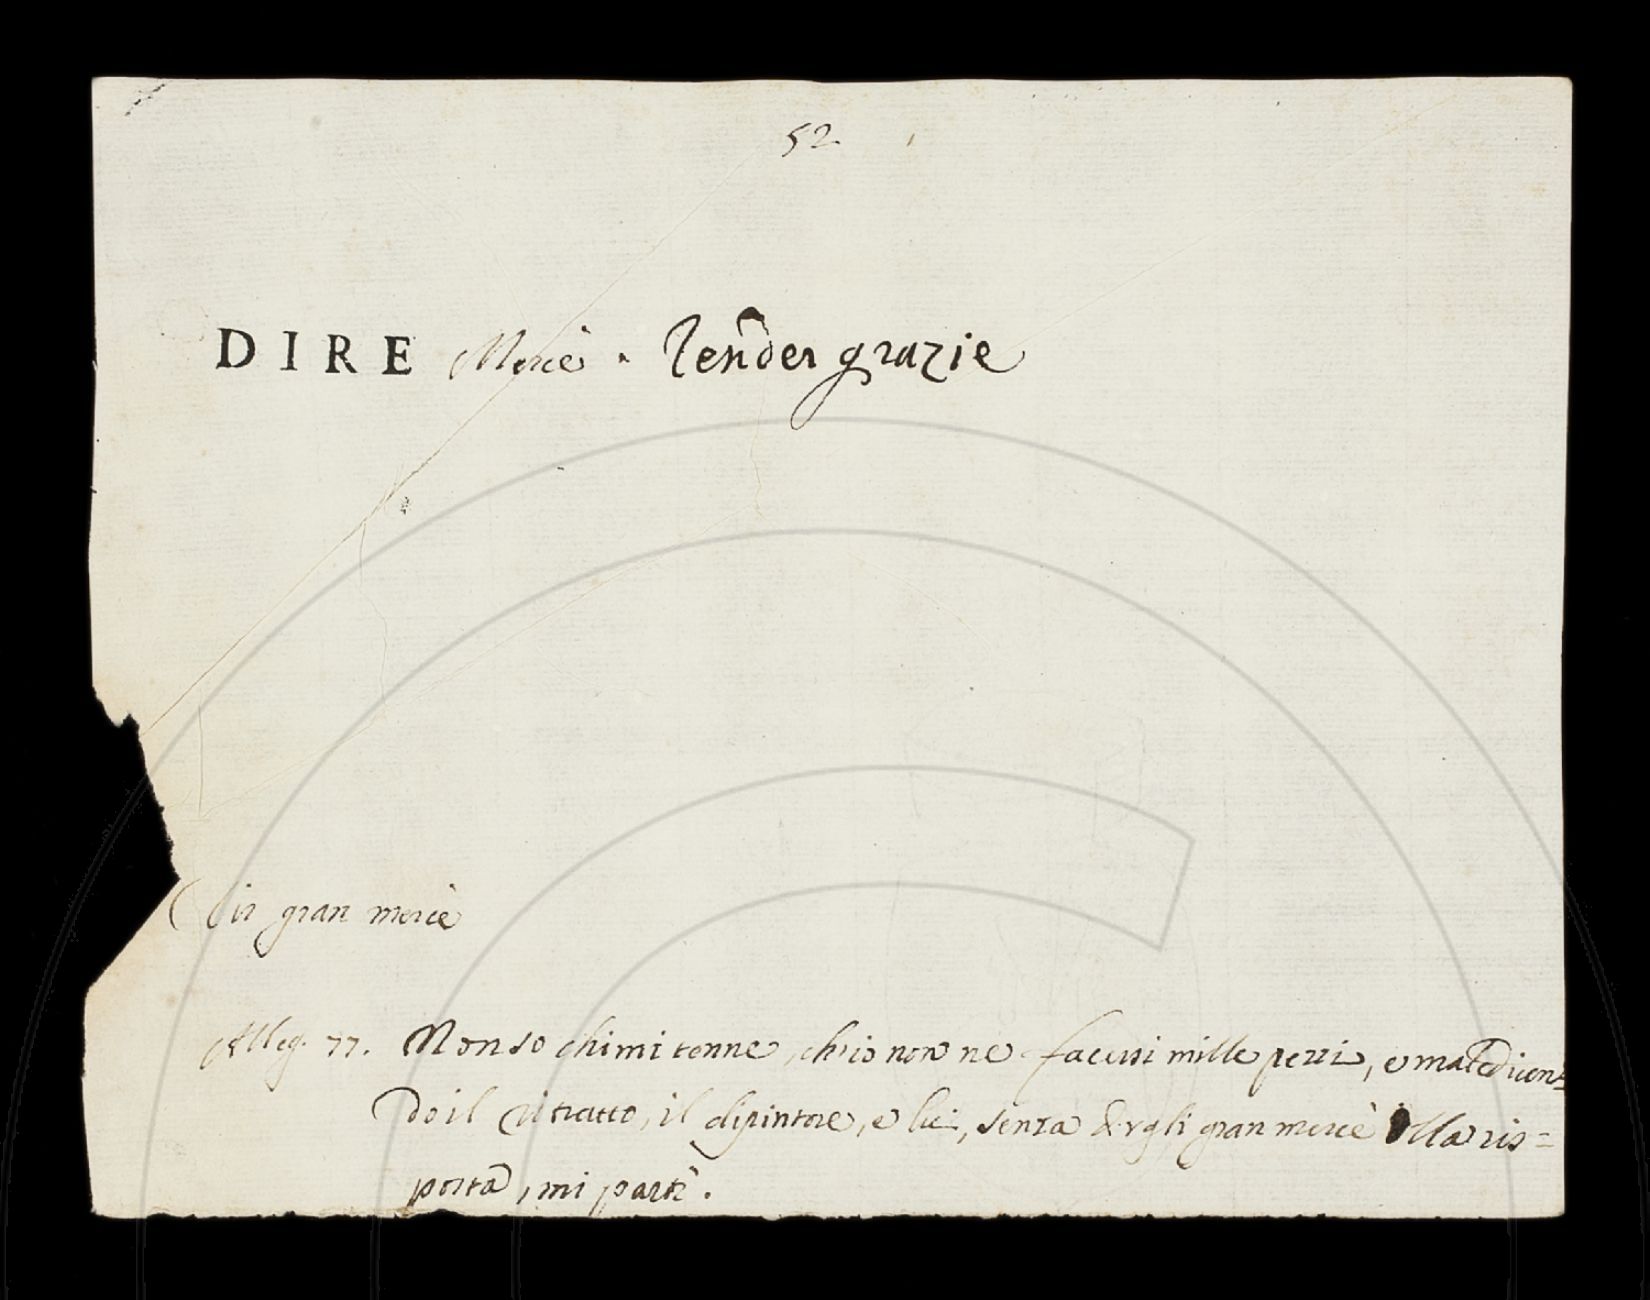 52
DIRE Mercè. Render grazie
Dir gran mercè
Alleg. 77. Non so chi mi tenne, ch'io non ne facessi mille pezzi, e maledicen=
do il ritratto, il dipintore, e lui, senza dirgli gran mercè della ris=
posta, mi partì.